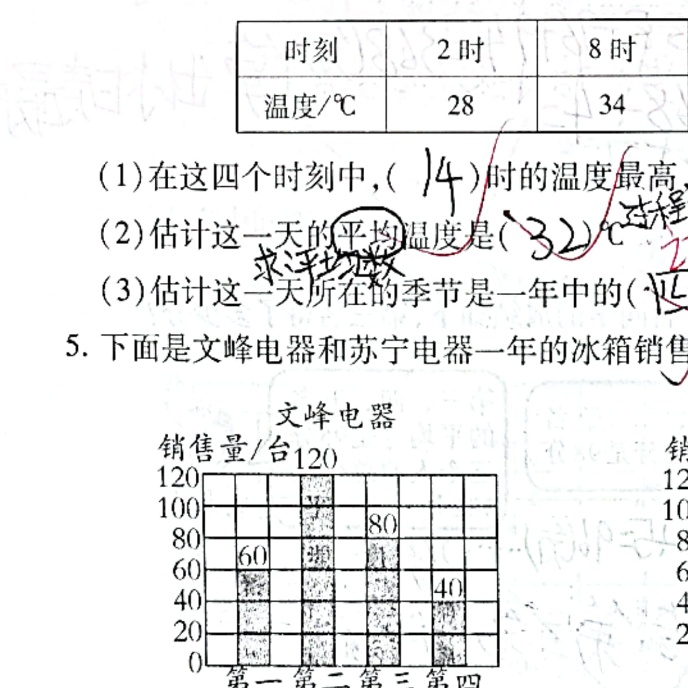 时刻 2时 8时
温度/℃ 28 34
(1)在这四个时刻中,( 14 )时的温度最高,
(2)估计这一天的平均温度是( 32 )℃ 过程
求平均数
(3)估计这一天所在的季节是一年中的(
5. 下面是文峰电器和苏宁电器一年的冰箱销售
文峰电器
销售量/台 销
120 120 12
100 10
80 80 8
60 60 6
40 40 4
20 2
0
第一 第二 第三 第四